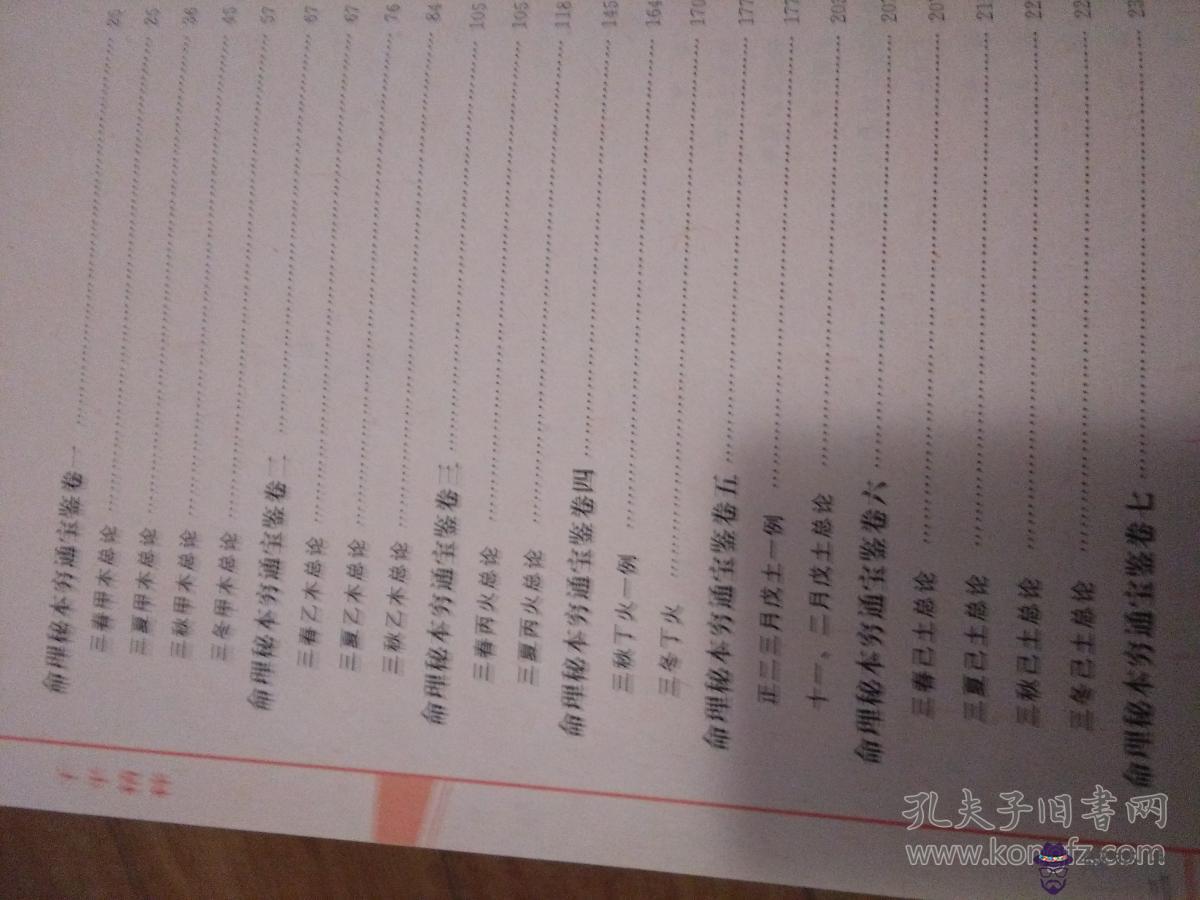 命理秘本穷通宝鉴卷一 …… 25
三春甲木总论 …… 25
三夏甲木总论 …… 36
三秋甲木总论 …… 45
三冬甲木总论 …… 57
命理秘本穷通宝鉴卷二 …… 67
三春乙木总论 …… 67
三夏乙木总论 …… 76
三秋乙木总论 …… 84
命理秘本穷通宝鉴卷三 …… 105
三春丙火总论 …… 105
三夏丙火总论 …… 118
命理秘本穷通宝鉴卷四 …… 145
三秋丁火一例 …… 164
三冬丁火 …… 170
命理秘本穷通宝鉴卷五 …… 177
正二三月戊土一例 …… 177
十一、二月戊土总论 …… 203
命理秘本穷通宝鉴卷六 …… 207
三春己土总论 …… 207
三夏己土总论 ……
三秋己土总论 ……
三冬己土总论 ……
命理秘本穷通宝鉴卷七 ……
子平精粹
孔夫子旧書网
www.kongfz.com